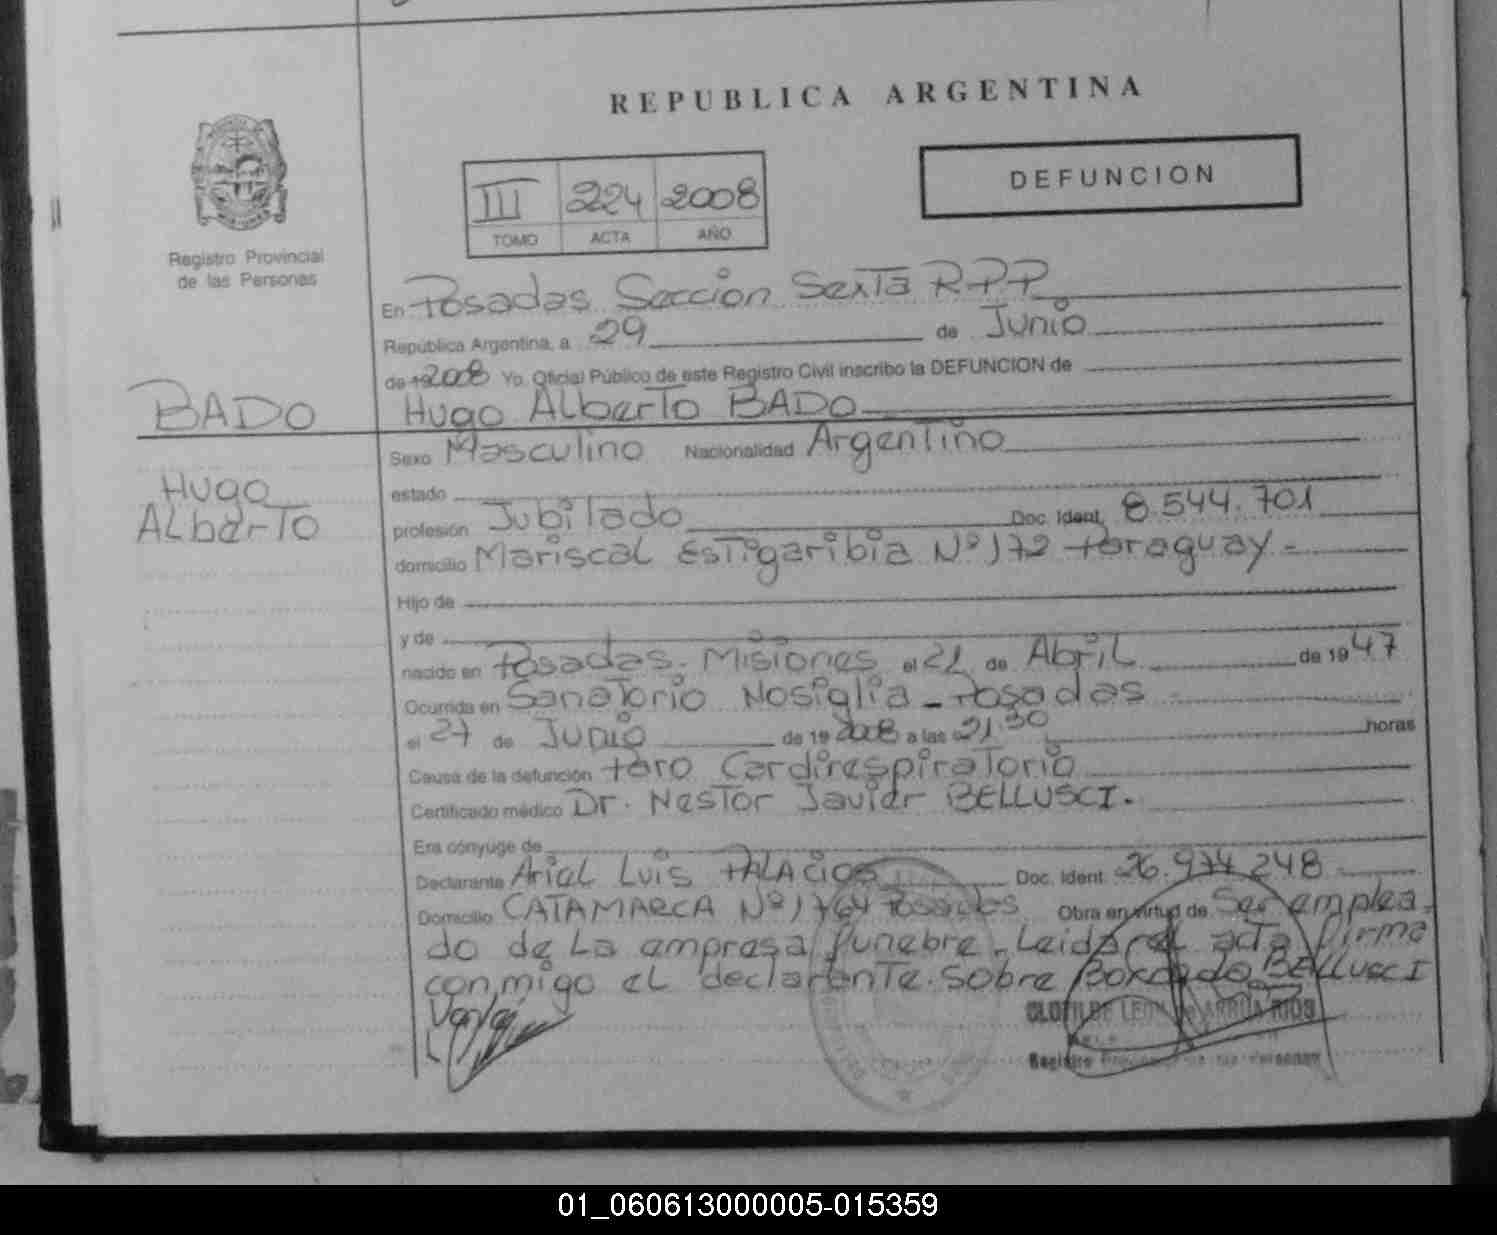 REPUBLICA ARGENTINA
DEFUNCION
III 224 2008
TOMO ACTA AÑO
Registro Provincial
de las Personas
En Posadas Seccion Sexta RPP
República Argentina, a 29 de Junio
de 19 2008 Yo, Oficial Público de este Registro Civil inscribo la DEFUNCION de
BADO
Hugo Alberto BADO
Sexo Masculino Nacionalidad Argentino
Hugo
Alberto
estado
profesión Jubilado Doc. Ident. 8.544.701
domicilio Mariscal Estigaribia Nº 172 Paraguay -
Hijo de
y de
nacido en Posadas. Misiones el 21 de Abril de 19 47
Ocurrida en Sanatorio Nosiglia - Posadas
el 27 de Junio de 19 2008 a las 21.30 horas
Causa de la defunción Paro Cardirespiratorio
Certificado médico Dr. Nestor Javier BELLUSCI.
Era cónyuge de
Declarante Ariel Luis PALACIOS Doc. Ident. 26.974.248
Domicilio CATAMARCA Nº 1764 Posadas Obra en virtud de Ser emplea-
do de la empresa funebre. Leida el acta firma
conmigo el declarante. Sobre Borrado BELLUSCI
Vale
CLOTILDE LEON de ARRUA RIOS
Registro Provincial de las Personas
01_060613000005-015359